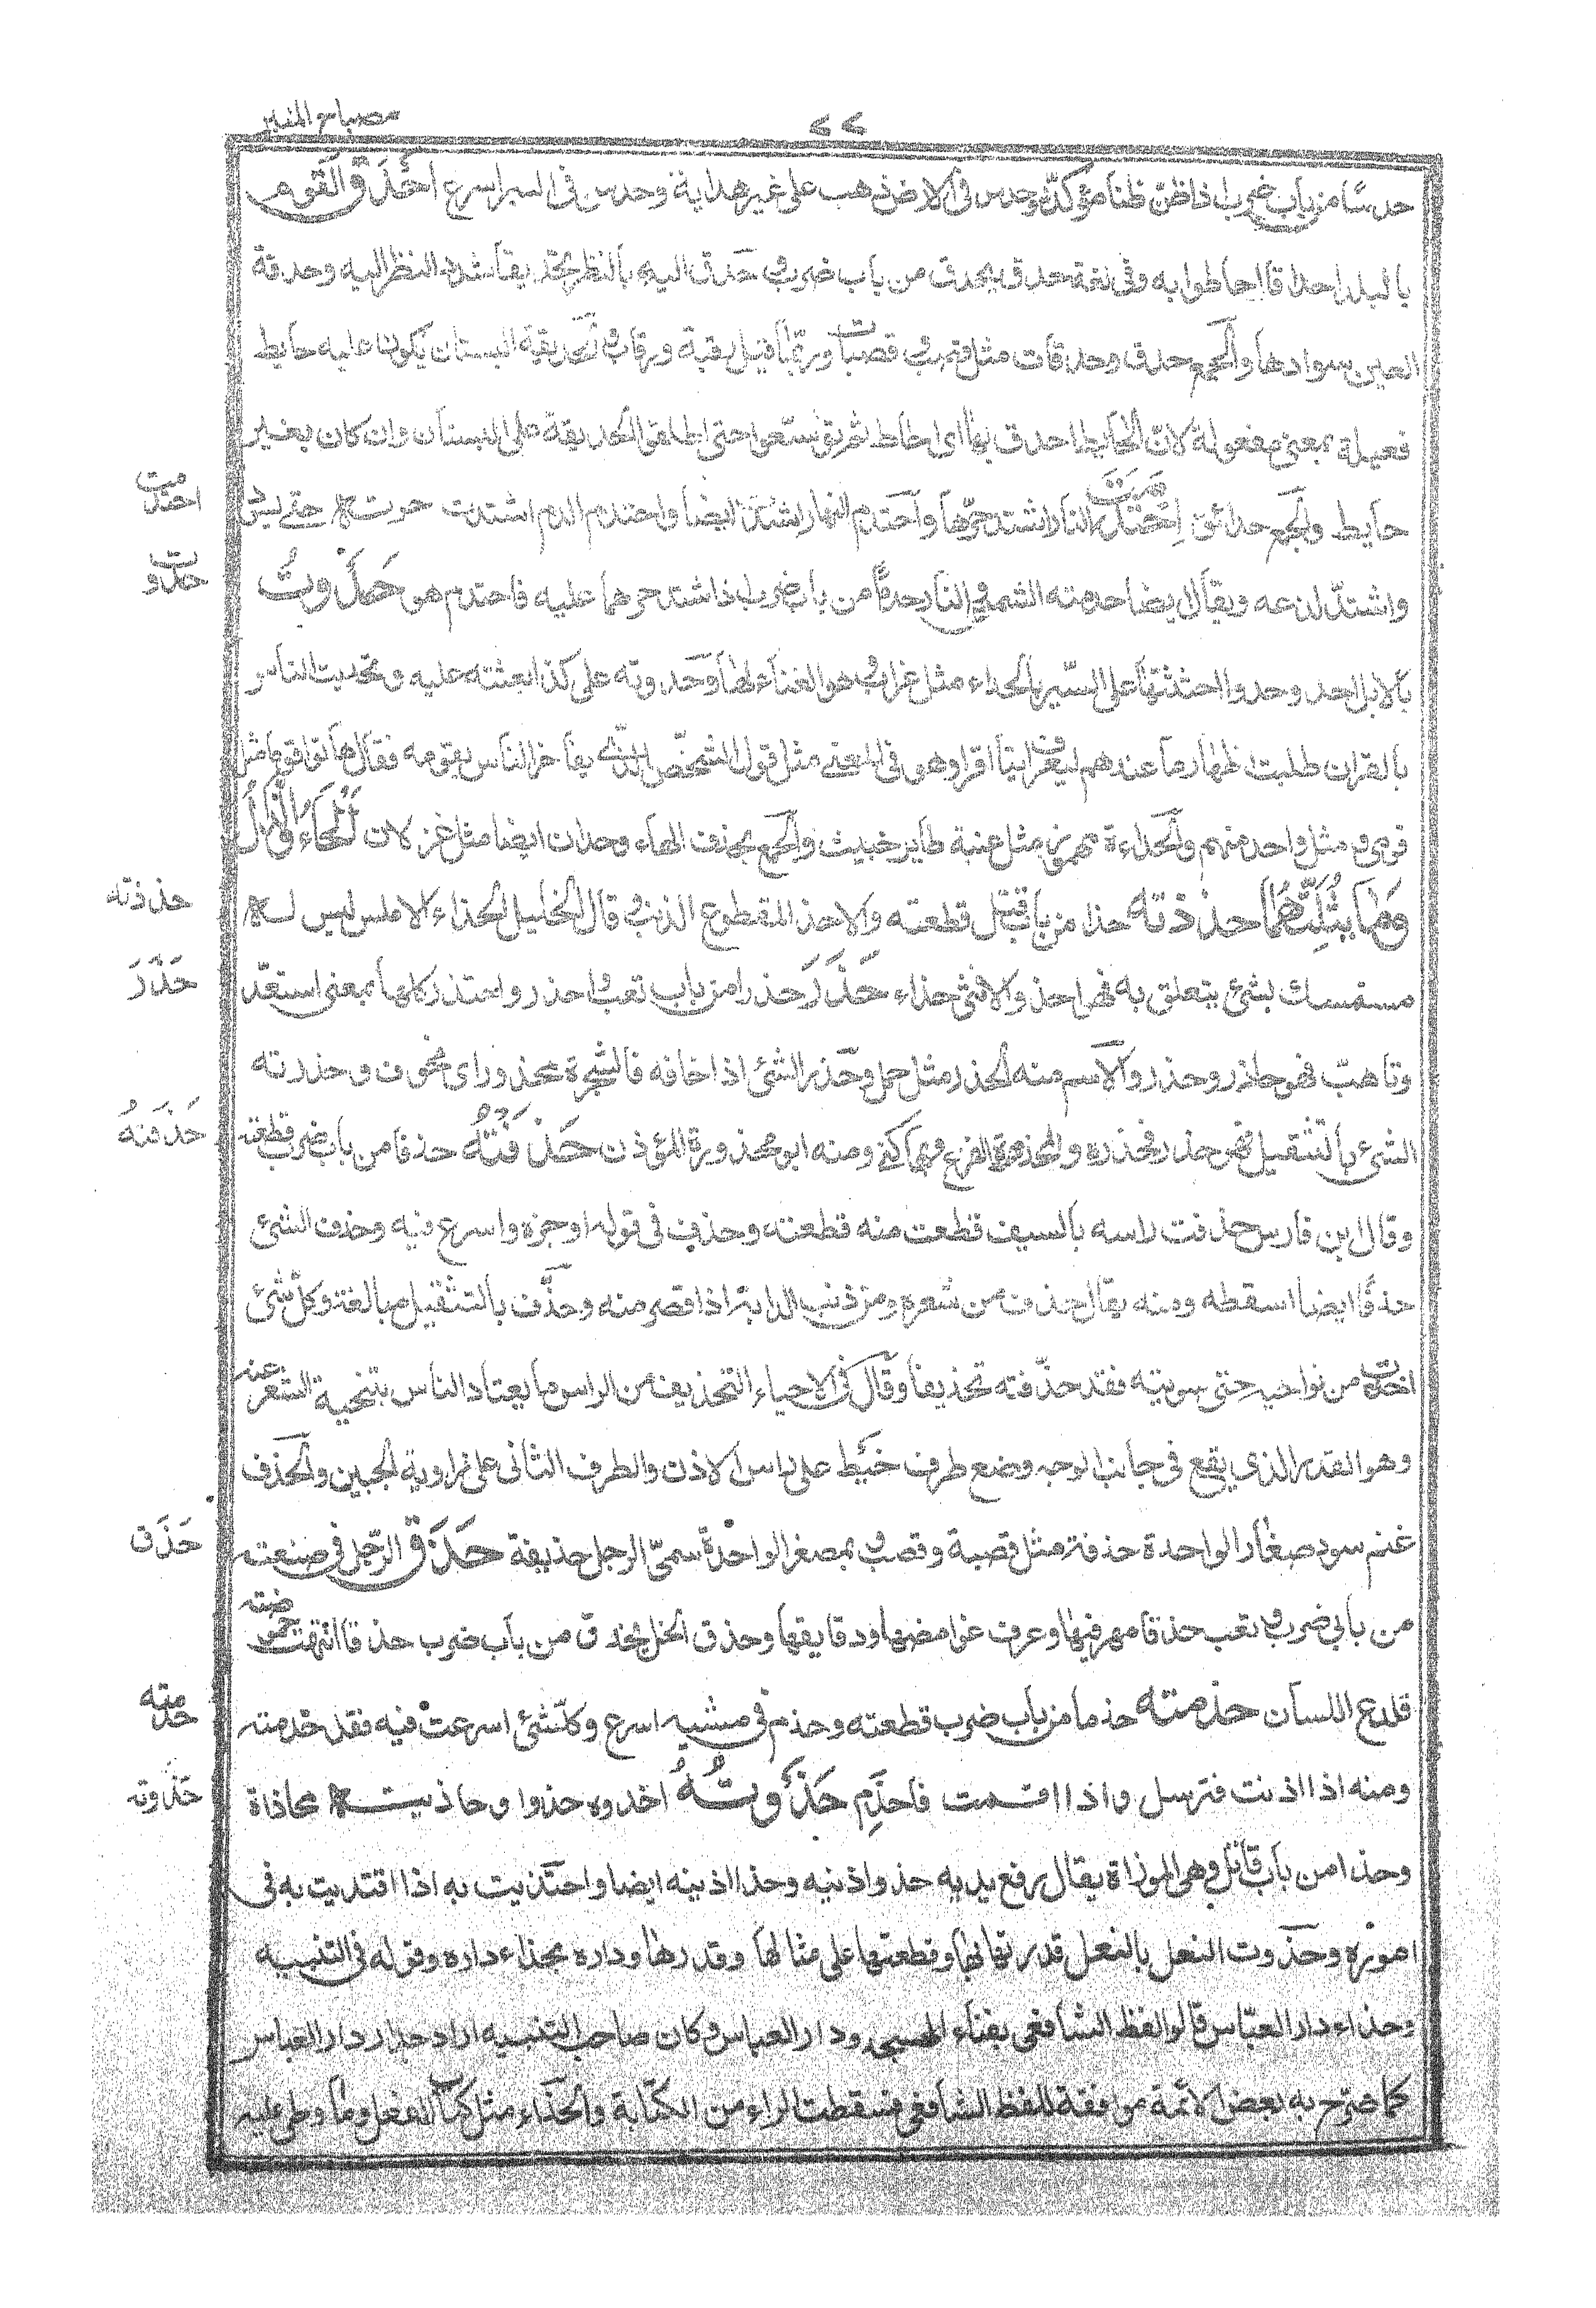 مصباح المنير
٧٧
حدسًا من باب ضرب اذا ظنّ ظنا مؤكدا وحدس فى الارض ذهب على غير هداية وحدس فى السير اسرع احدَق القَوم
بالبلد احداقا احاطوا به وفى لغة حدق يحدق من باب ضرب وحدّق اليه بالنظر تحديقا شدد النظر اليه وحدقة
العين سوادها والجمع حدق وحدقات مثل قصبة وقصب وقصبات وربّما قيل رقبة ورقاب والحديقة البستان يكون عليه حايط
فعيلة بمعنى مفعولة لان الحايط احدق بها اى احاط ثم توسّعوا حتى اطلقوا الحديقة على البستان وان كان بغير
حايط والجمع حدائق اِحتدمَت النار اشتد حرّها واحتدم النهار اشتدّ ايضا واحتدم الدم اشتدت حمرته حتى يسود
واشتدّ لذعه ويقال ايضا حدمته الشمس والنار حدمًا من باب ضرب اذا اشتد حرهما عليه فاحتدم هو حَدَوتُ
بالابل احدو حدوا حثثتها على السّير بالحداء مثل غراب وهو الغناء لها وحدوته على كذا بعثته عليه وتحديت الناس
بالقران طلبت اظهار ما عندهم ليعرف اينا اقرا وهو فى المعنى مثل قول الشخص الذى يفاخر الناس بقومه فقال هاتوا قوما مثل
قومى او مثل واحد منهم والحداءة مهموز مثل عنبة طاير خبيث والجمع بحذف الهاء وحدان ايضا مثل غزلان اَلحَاءُ والذَّالُ
وَمَا يَثْلِثُهُمَا حذذته حذا من باب قتل قطعته والاحذ المقطوع الذنب وقال الخليل الحذاء الاملس ليس له
مستمسك لشئ يتعلق به فهو احذ والانثى حذاء حَذَرَ حذرا من باب تعب واحذر واحتذر كلها بمعنى استعدّ
وتاهبّ فهو حاذر وحذر والاسم منه الحذر مثل حمل وحذر الشئ اذا خافه فالشئ محذور اى مخوف وحذرته
الشئ بالتثقيل فحذره والمحذورة الفزع وبها كنى ومنه ابو محذورة المؤذن حَذَفْتُهُ حذفا من باب ضرب قطعته
وقال ابن فارس حذفت راسه بالسيف قطعت منه قطعة وحذف فى قوله اوجزه واسرع فيه وحذف الشئ
حذفًا ايضا اسقطه ومنه يقال حذف من شعره ومن ذنب الدابة اذا قصر منه وحذّف بالتثقيل مبالغة وكلّ شئ
اخذت من نواحيه حتى سويته فقد حذّفته تحذيفا وقال فى الاحياء التحذيف من الراس ما يعتاد الناس بتنحية الشعر عنه
وهو القدر الذى يقع فى جانب الوجه وضع طرف خيط على راس الاذن والطرف الثانى على زاوية الجبين والحذف
غنم سود صغار الواحدة حذفة مثل قصبة وقصب وبمصغر الواحدة سمىّ الرجل حذيفة حَذَق الرّجل فى صنعته
من بابي ضرب وتعب حذقا مهر فيها وعرف غوامضها ودقايقها وحذق الخل يحذق من باب ضرب حذقا انتهت حموضته
فلذع اللسان حذمته حذما من باب ضرب قطعته وحذم فى مشيه اسرع وكلّ شئ اسرعت فيه فقد حذمته
ومنه اذا اذنت فترسل واذا اقمت فاحذِم حَذَوتُهُ احذوه حذوا وحاذيته محاذاة
وحذاء من باب قاتل وهى الموازاة يقال رفع يديه حذو اذنيه وحذا اذنيه ايضا واحتذيت به اذا اقتديت به فى
اموره وحذوت النعل بالنعل قدرتها بها وقطعتها على مثالها وقدرها وداره بحذاء داره وقوله فى التنبيه
وحذاء دار العبّاس قالوا لفظ الشافعى بفناء المسجد ودار العباس وكان صاحب التنبيه اراد جدار دار العباس
كما صرّح به بعض الائمة موافقة للفظ الشافعى فسقطت الراء من الكتابة والحذاء مثل كتاب النعل وما وطى عليه
احتدمت
حدوت
حذذته
حَذَرَ
حَذَفتهُ
حَذَق
حذمته
حَذَوته